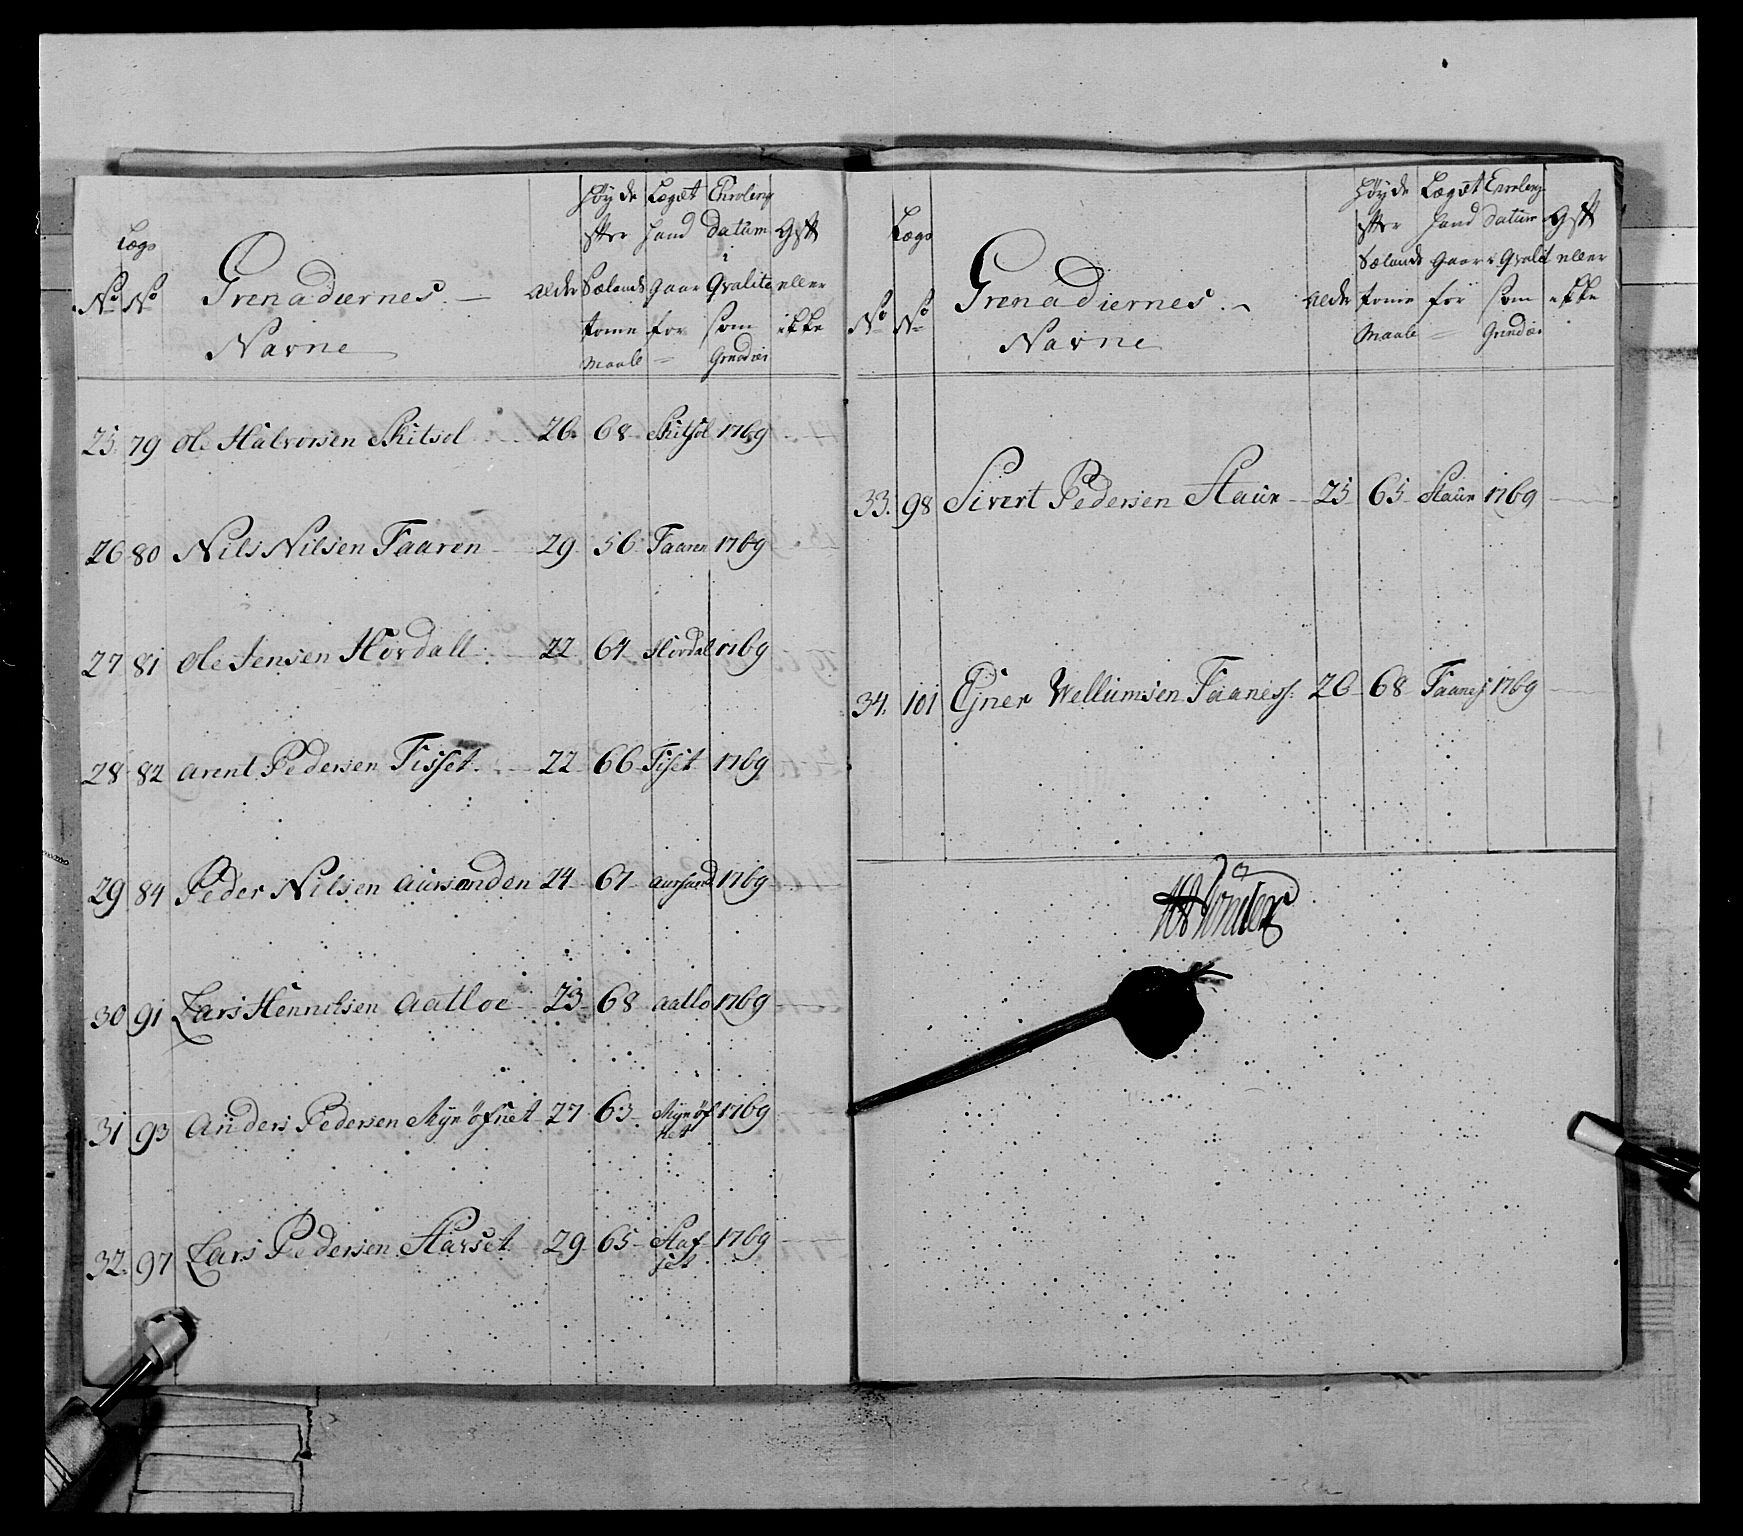 No
Lægs No
Grenadiernes Navne
Alder
Høyde efter Sælands tomme Maale
Lægæt hand gaar for
Enroleng datum i Qvalite som Grenadier
Gift eller ikke
25. 79 Ole Halvorsen Skitsol 26. 68 Skitsol 1769
26 80 Nils Nilsen Faaren 29 56 Faaren 1769
27 81 Ole Jensen Hordall 22 64 Hordal 1769
28 82 Arent Pedersen Fisset 22 66 Fiset 1769
29 84 Peder Nilsen Aursonden 24 67 Aursund 1769
30 91 Lars Henrilsen Aatloe 23 68 Aatlo 1769
31 93 Anders Pedersen Myrøfnet 27 63 Myrøf
net 1769
32. 97 Lars Pedersen Starset 29 65 Staf
set 1769
No
Lægs No
Grenadiernes Navne
Alder
Høyde efter Sælands tomme Maale
Lægæt hand gaar for
Enroleng datum i Qvalit som Grendier
Gift eller ikke
33. 98 Sivert Pedersen Staur 25 65 Staur 1769
34. 101 Ejner Wellumsen Faaness 26 68 Faanes 1769